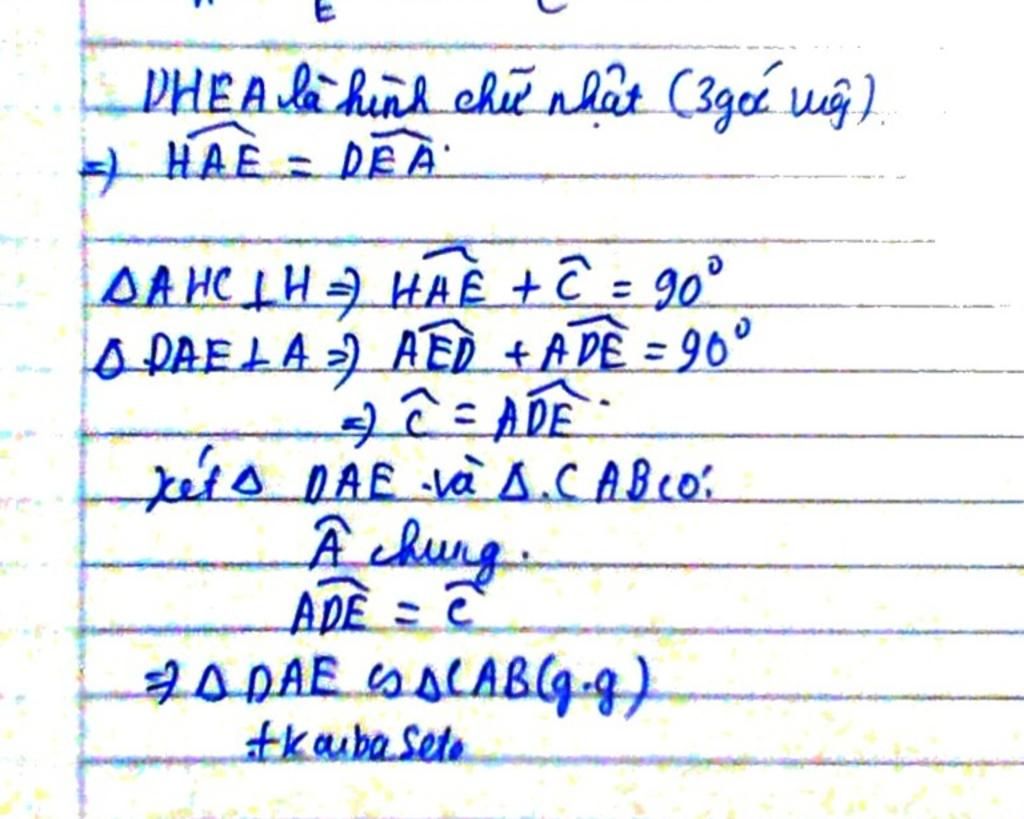 E C
DHEA là hình chữ nhật (3 góc vuông)
=) HAE = DEA.
Δ AHC ⊥ H =) HAE + C = 90⁰
Δ DAE ⊥ A =) AED + ADE = 90⁰
=) C = ADE.
xét Δ DAE và Δ.CAB có:
A chung.
ADE = C
=) Δ DAE ∽ ΔCAB (g.g)
+Kaiba Seto